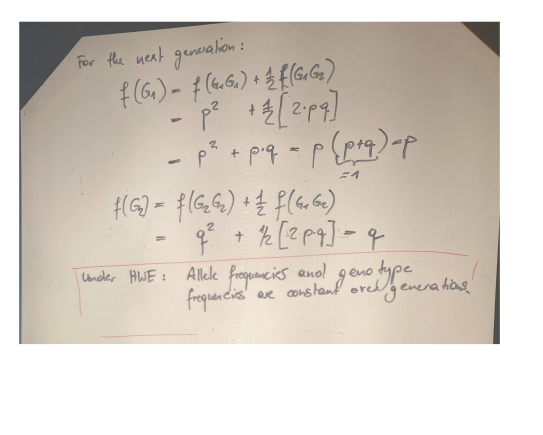 For the next generation:
f(G₁) = f(G₁G₁) + ½ f(G₁G₂)
= p² + ½ [2·pq]
= p² + p·q = p (p+q) = p
=1
f(G₂) = f(G₂G₂) + ½ f(G₁G₂)
= q² + ½ [2p·q] = q
Under HWE: Allele frequencies and genotype
frequncies are constant over generations.